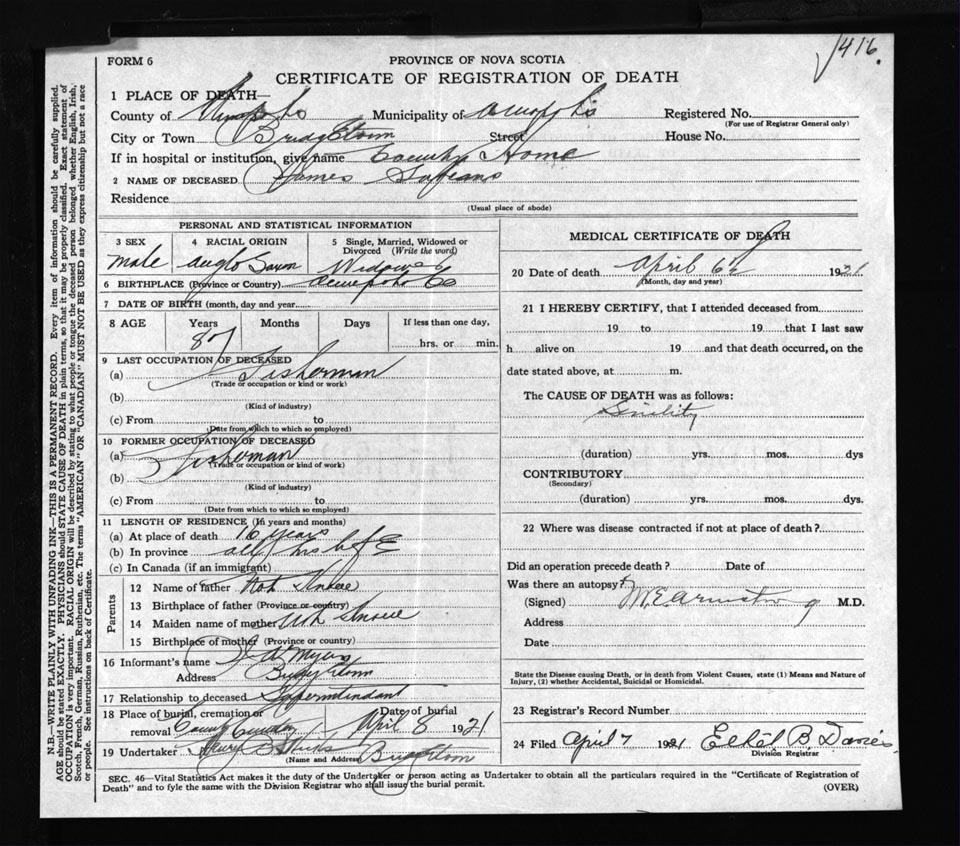 √416.
FORM 6
PROVINCE OF NOVA SCOTIA
CERTIFICATE OF REGISTRATION OF DEATH
1 PLACE OF DEATH—
County of Municipality of Registered No.
(For use of Registrar General only)
City or Town Street House No.
If in hospital or institution, give name County Home
2 NAME OF DECEASED James
Residence
(Usual place of abode)
PERSONAL AND STATISTICAL INFORMATION
3 SEX 4 RACIAL ORIGIN 5 Single, Married, Widowed or Divorced (Write the word)
male Anglo Saxon
6 BIRTHPLACE (Province or Country) Co
7 DATE OF BIRTH (month, day and year)
8 AGE Years Months Days If less than one day,
87 hrs. or min.
9 LAST OCCUPATION OF DECEASED
(a) Fisherman
(Trade or occupation or kind or work)
(b)
(Kind of industry)
(c) From to
(Date from which to which so employed)
10 FORMER OCCUPATION OF DECEASED
(a) Fisherman
(Trade or occupation or kind of work)
(b)
(Kind of industry)
(c) From to
(Date from which to which so employed)
11 LENGTH OF RESIDENCE (In years and months)
(a) At place of death 16 years
(b) In province all his life
(c) In Canada (if an immigrant)
Parents
12 Name of father Not
13 Birthplace of father (Province or country)
14 Maiden name of mother
15 Birthplace of mother (Province or country)
16 Informant's name Myers
Address
17 Relationship to deceased
18 Place of burial, cremation or removal Date of burial April 8 1921
19 Undertaker
(Name and Address)
MEDICAL CERTIFICATE OF DEATH
20 Date of death April 6 1921
(Month, day and year)
21 I HEREBY CERTIFY, that I attended deceased from
19 to 19 that I last saw
h alive on 19 and that death occurred, on the
date stated above, at m.
The CAUSE OF DEATH was as follows:
(duration) yrs. mos. dys
CONTRIBUTORY
(Secondary)
(duration) yrs. mos. dys.
22 Where was disease contracted if not at place of death?
Did an operation precede death? Date of
Was there an autopsy?
(Signed) M.E. Armstrong M.D.
Address
Date
State the Disease causing Death, or in death from Violent Causes, state (1) Means and Nature of
Injury, (2) whether Accidental, Suicidal or Homicidal.
23 Registrar's Record Number
24 Filed April 7 1921 Ethel B. Davies
Division Registrar
SEC. 46—Vital Statistics Act makes it the duty of the Undertaker or person acting as Undertaker to obtain all the particulars required in the "Certificate of Registration of
Death" and to fyle the same with the Division Registrar who shall issue the burial permit. (OVER)
N.B.—WRITE PLAINLY WITH UNFADING INK—THIS IS A PERMANENT RECORD. Every item of information should be carefully supplied.
AGE should be stated EXACTLY. PHYSICIANS should STATE CAUSE OF DEATH in plain terms, so that it may be properly classified. Exact statement of
OCCUPATION is very important. RACIAL ORIGIN will be described by stating to what people or tongue the deceased person belonged whether English, Irish,
Scotch, French, German, Russian, Ruthenian, etc. The terms "AMERICAN" OR "CANADIAN" MUST NOT BE USED as they express citizenship but not a race
or people. See instructions on back of Certificate.